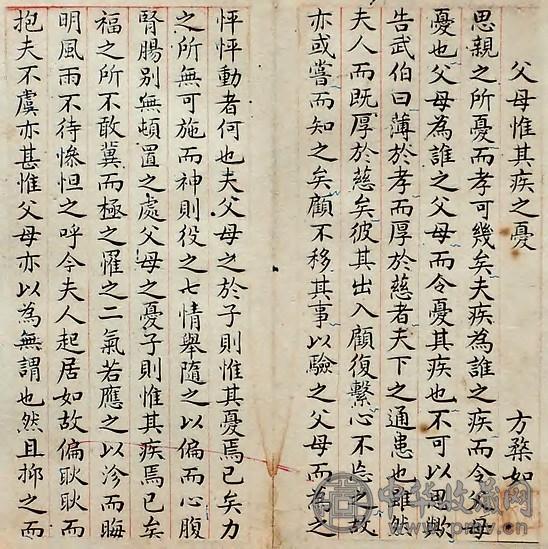 父母惟其疾之憂
方楘如
思親之所憂而孝可幾矣夫疾為誰之疾而令父母
憂也父母為誰之父母而令憂其疾也不可以思歟
告武伯曰薄於孝而厚於慈者天下之通患也雖然
夫人而既厚於慈矣彼其出入顧復繫心不忘之故
亦或嘗而知之矣顧不移其事以驗之父母而為之
怦怦動者何也夫父母之於子則惟其憂焉已矣力
之所無可施而神則役之七情舉隨之以偏而心腹
腎腸別無頓置之處父母之憂子則惟其疾焉已矣
福之所不敢冀而極之罹之二氣若應之以沴而晦
明風雨不待慘怛之呼令夫人起居如故偏耿耿而
抱夫不虞亦甚惟父母亦以為無謂也然且抑之而
中华收藏网